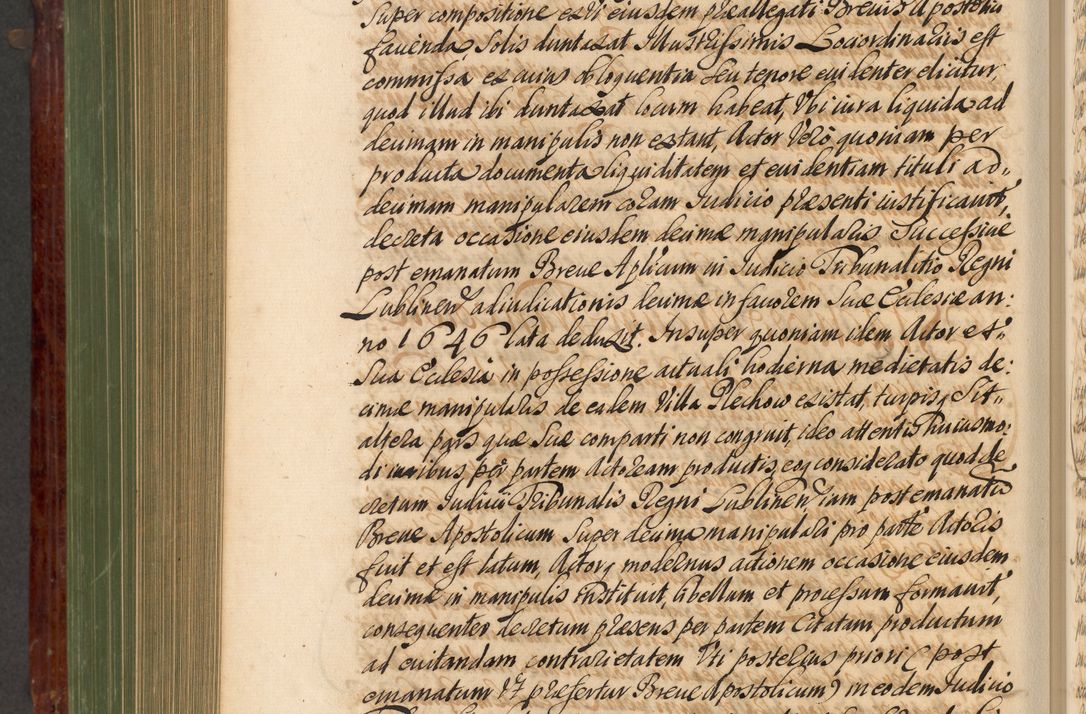 Super compositione et vi eiusdem præallegati Brevis Apostolici
favenda, Solis duntaxat Illustrissimis Lociordinariis est
commissa, ex cuius obloquentia seu tenore evidenter elicitur,
quod illud ibi duntaxat locum habeat, Ubi iura liquida ad
decimam in manipulis non extant, Actor Verò quoniam per
producta documenta liquiditatem et evidentiam tituli ad„
decimam manipularem coram Iudicio præsenti iustificavit,
decreta occasione eiusdem decimæ manipularis Successivè
post emanatum Breve Aplicum in Iudicio Tribunalitio Regni
Lublinen adiudicationis decimæ in favorem Suæ Ecclesiæ an:
no 1646 lata deduxit. Insuper quoniam idem Actor et„
Sua Ecclesia in possessione actuali hodierna medietatis de:
cimæ manipularis de eadem Villa Plechow existat, Sit„
altera pars quæ Suæ comparti non congruit, ideo attentis huiusmo:
di iuribus, per partem Actoream productis, eoq considerato quod de
cretum Iudicii Tribunalis Regni Lublinen, iam post emanatū
Breve Apostolicum Super decima manipulari pro parte Actoris
fuit et est latum, Actorq modernus actionem occasione eiusdem
decimæ in manipulis instituit, libellum et processum formavit,
consequenter decretum præsens per partem Citatam productum
ad evitandam contrarietatem Uti posterius priori (post
emanatum Ut præfertur Breve Apostolicum) in eodem Iudicio